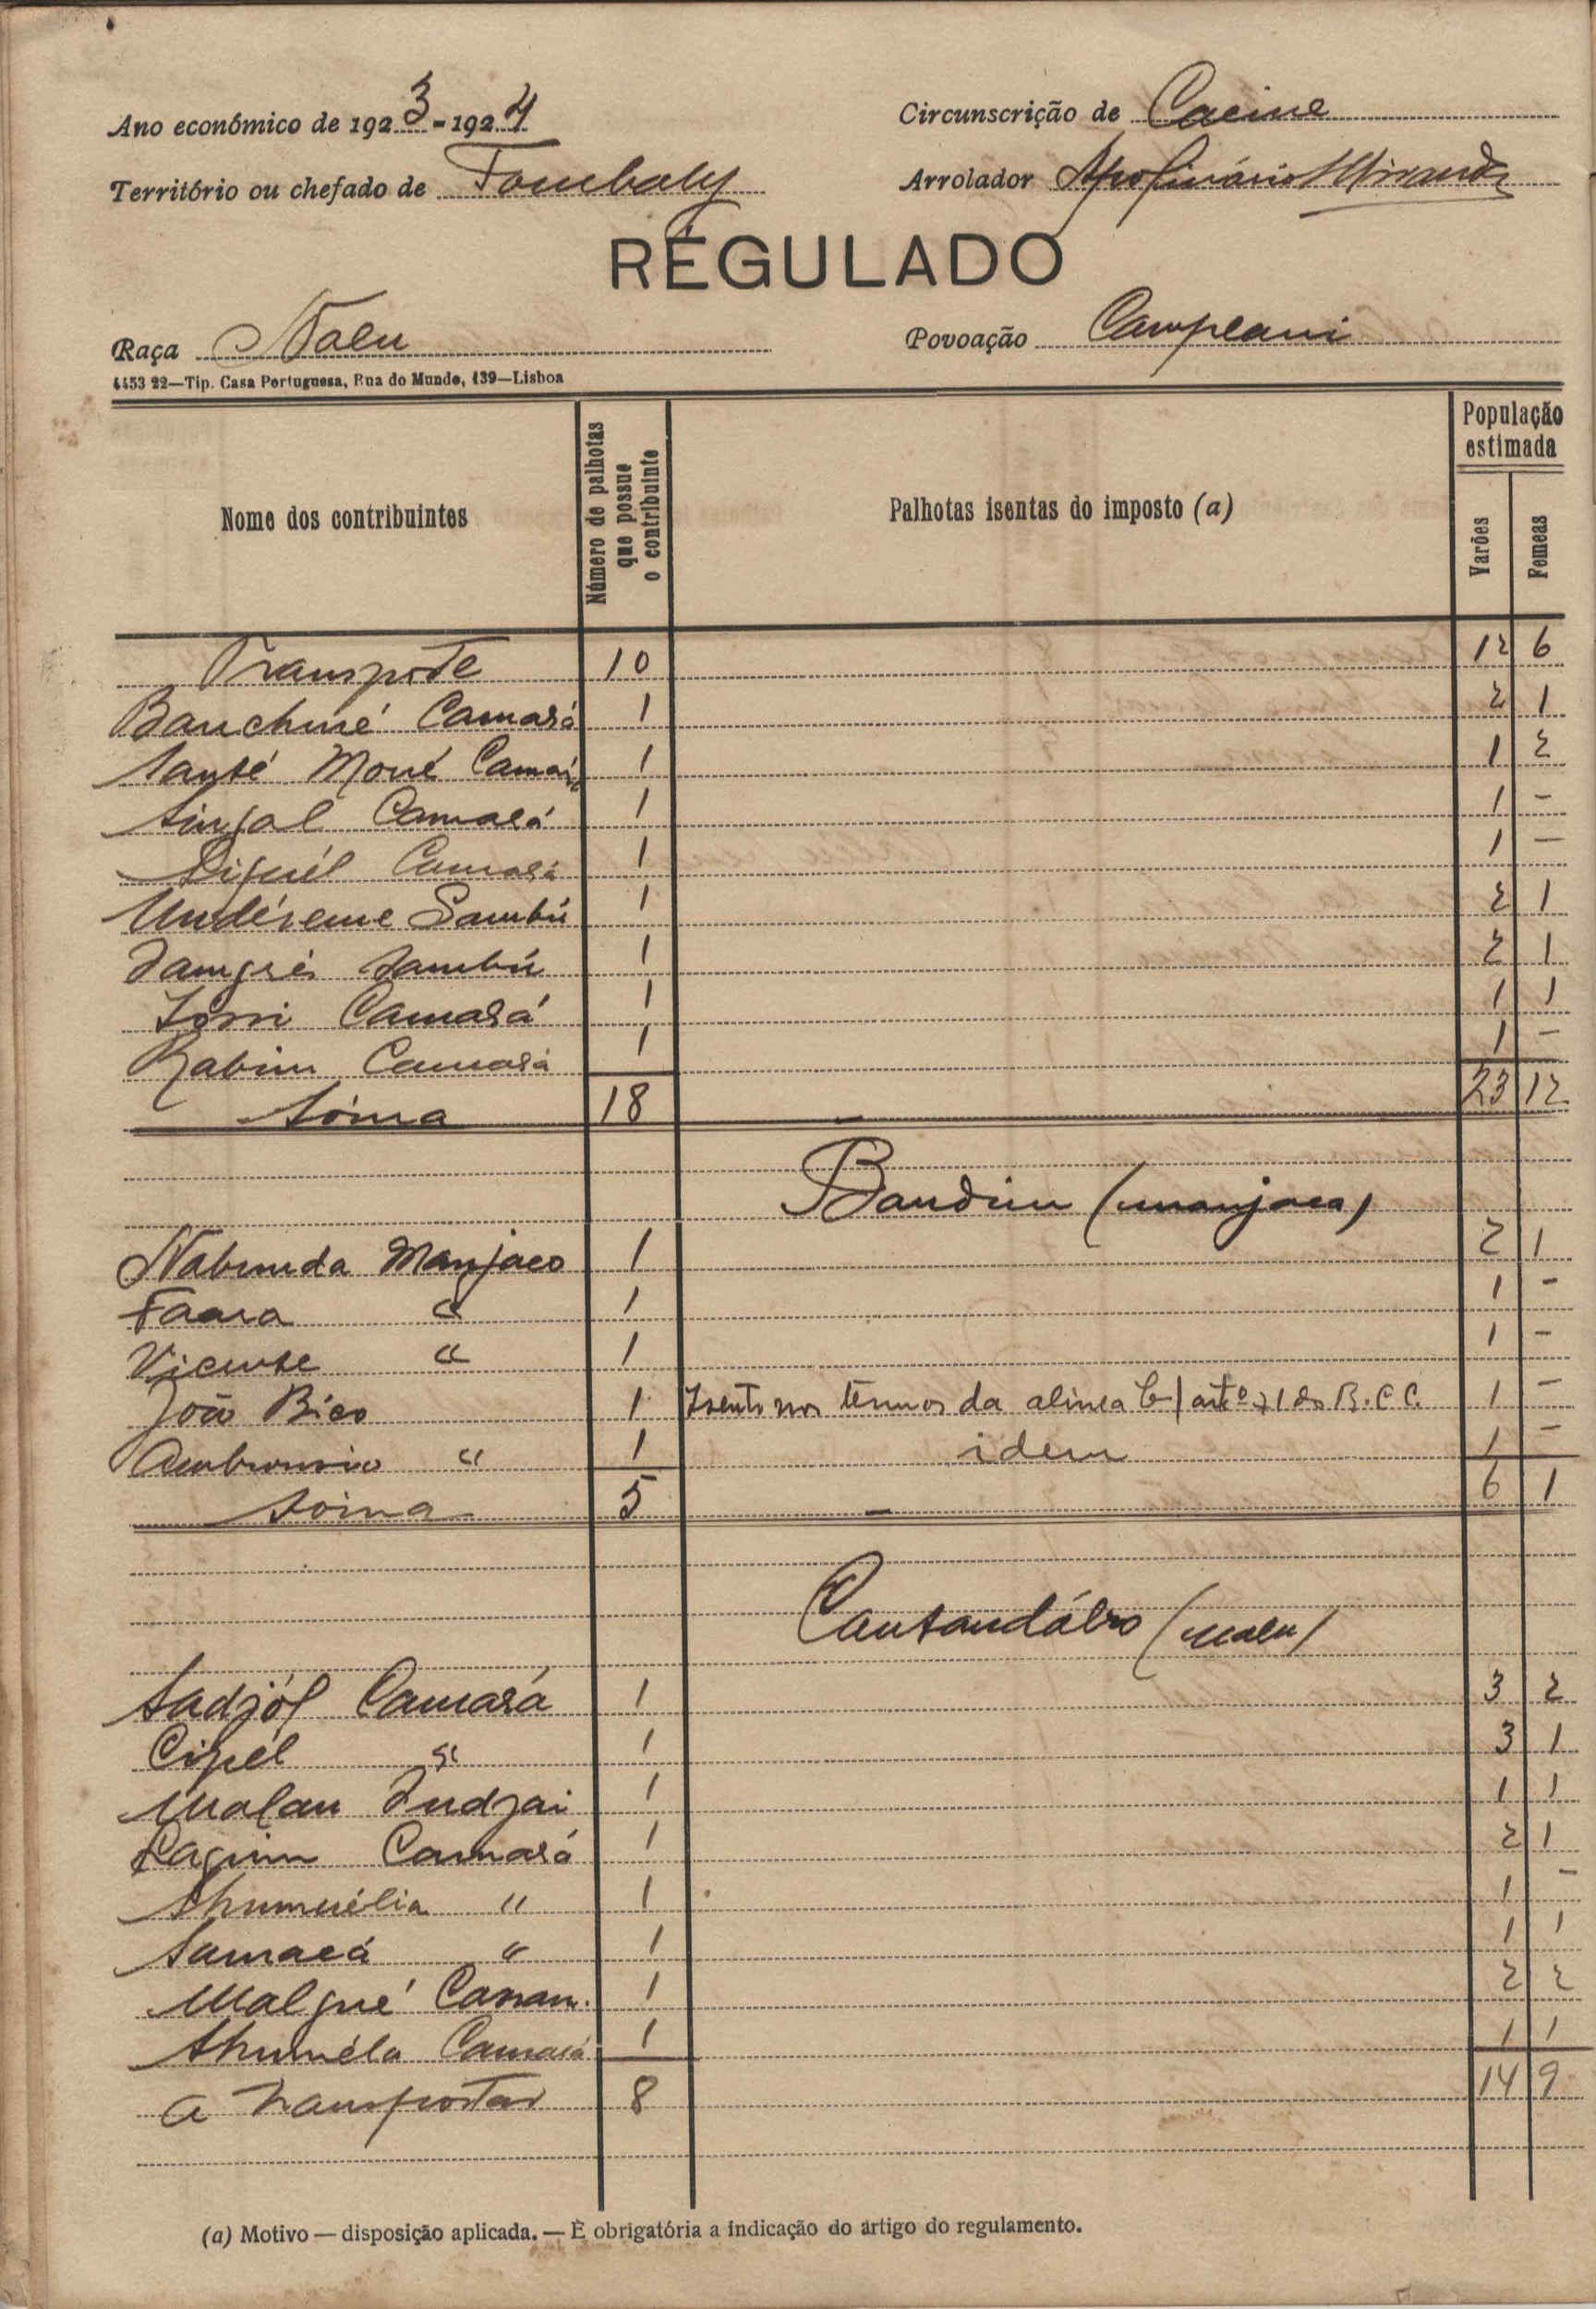 Ano económico de 1923-1924
Circunscrição de Cacine
Território ou chefado de Tombaly
Arrolador Apolinário Miranda
REGULADO
Raça Nalu
Povoação Campeani
4453 22—Tip. Casa Portuguesa, Rua do Mundo, 139—Lisboa
Nome dos contribuintes
Número de palhotas que possue o contribuinte
Palhotas isentas do imposto (a)
População estimada
Varões
Femeas
Transporte 10 12 6
Camará 1 2 1
Moné Camará 1 1 2
Camará 1 1 -
Camará 1 1 -
Sambú 1 2 1
Sambú 1 2 1
Camará 1 1 1
Camará 1 1 -
Sóma 18 - 23 12
Bandim (manjaca)
Nabunda Manjaco 1 2 1
Faara " 1 1 -
Vicente " 1 1 -
João Bico 1 Isento nos têrmos da alinea b) artº 71 do R.C.C. 1 -
Ambrosio " 1 idem 1 -
Soma 5 - 6 1
(nalu)
Sadjól Camará 1 3 2
" 1 3 1
Malan Indjai 1 1 1
Camará 1 2 1
" 1 1 -
Samacá " 1 1 1
Malgué Camar. 1 2 2
Camará 1 1 1
A transportar 8 14 9
(a) Motivo — disposição aplicada. — É obrigatória a indicação do artigo do regulamento.